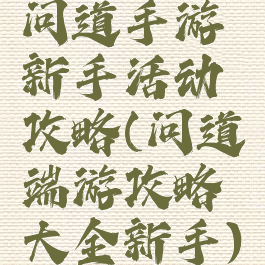 问道手游
新手活动
攻略(问道
端游攻略
大全新手)